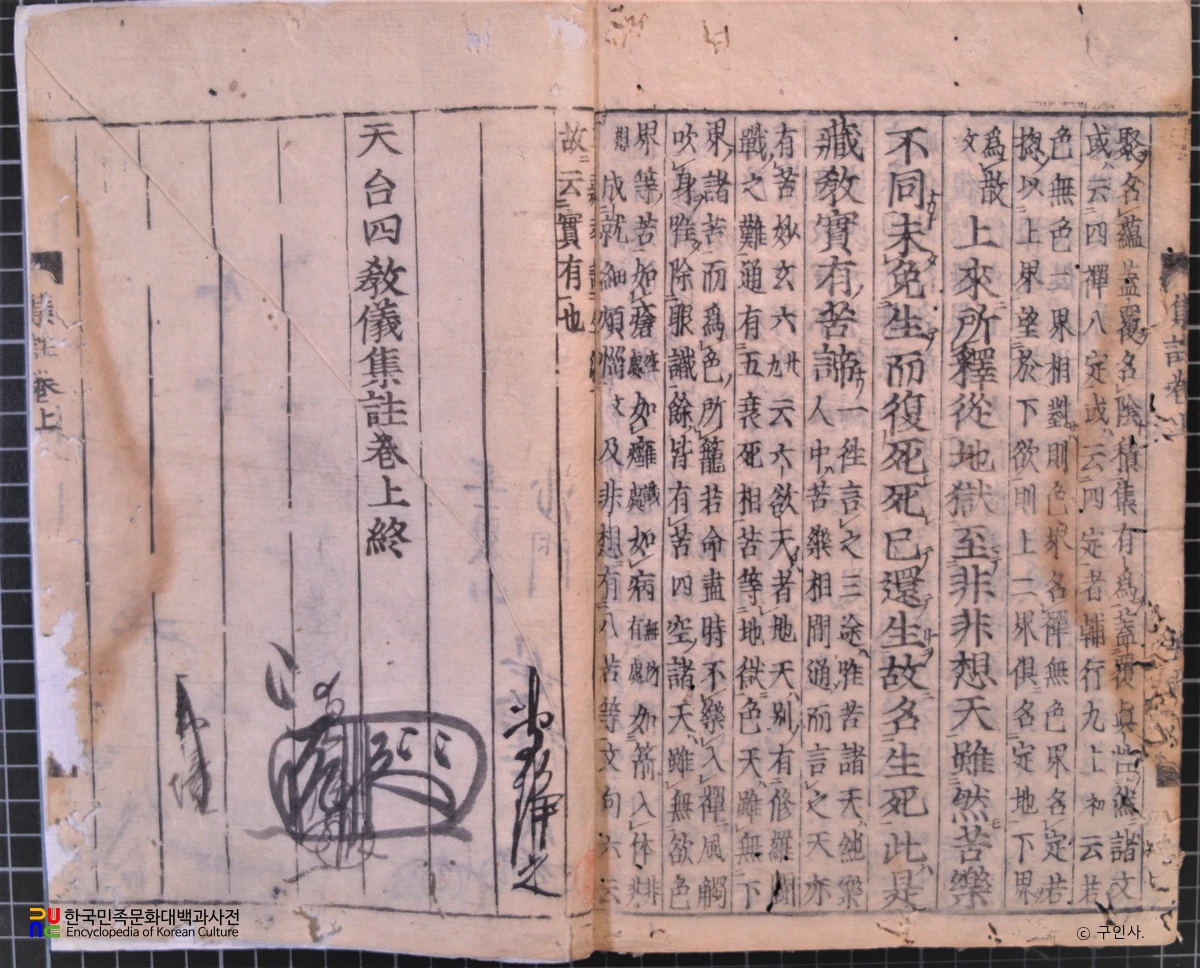 聚名蘊盖覆名陰積集有爲盖覆眞性然諸文
或云四禪八定或云四定者輔行九上初云若
色無色二界相對則色界名禪無色界名定若
捴以上界望於下欲則上二界俱名定地下界
爲散
文
上來所釋從地獄至非非想天雖然苦樂
不同未免生而復死死已還生故名生死此是
藏教實有苦諦
一徃言之三途唯苦諸天純樂
人中苦樂相間通而言之天亦
有苦妙玄六九廿云六欲天者地天別有修羅鬪
戰之難通有五衰死相苦等地獄色天雖無下
界諸苦而爲色所籠若命盡時不樂入禪風觸
吹身唯除眼識餘皆有苦四空諸天雖無欲色
界等苦如瘡處如癰識處如病無所有處如箭入体非非
想成就細煩惱文及非想有八苦等文句六云
故云實有也
天台四教儀集註卷上終
集註卷
集註卷上
한국민족문화대백과사전
Encyclopedia of Korean Culture
ⓒ 구인사.